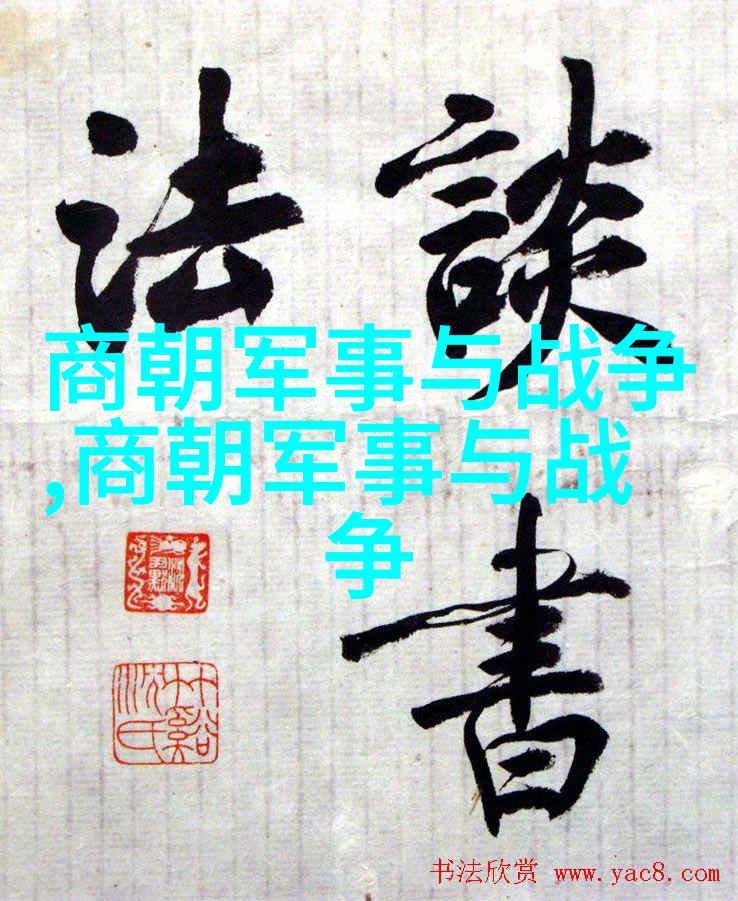 談書
法
商朝军事与战争
,商朝军事与战
争
书法欣赏 www.yac8.com